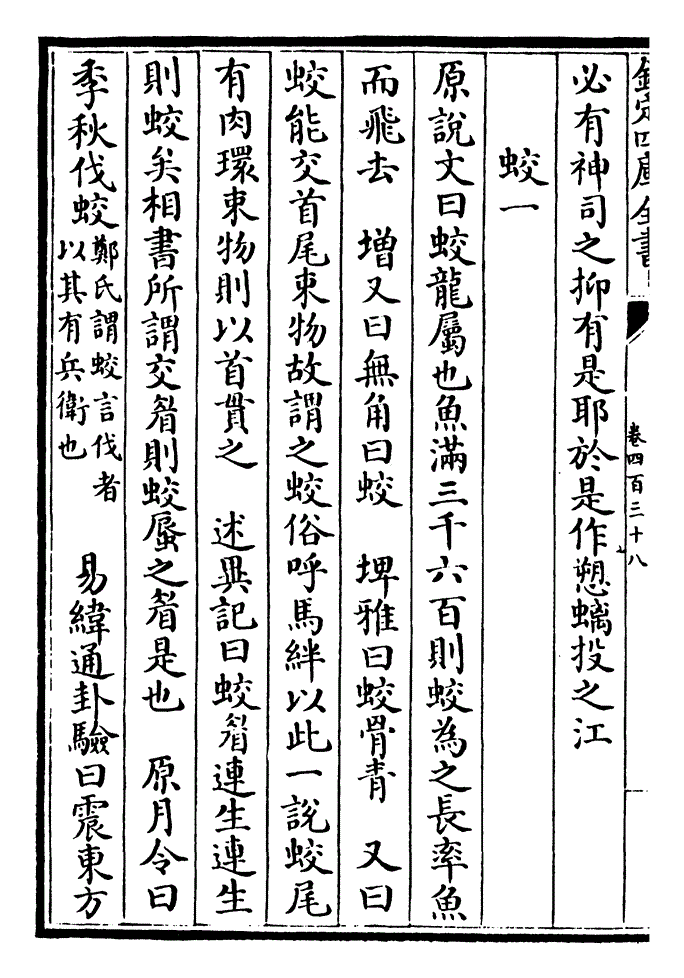 欽定四庫全書
卷四百三十八
必有神司之抑有是耶於是作愬螭投之江
蛟一
原說文曰蛟龍屬也魚滿三千六百則蛟為之長率魚
而飛去　增又曰無角曰蛟　埤雅曰蛟骨青　又曰
蛟能交首尾束物故謂之蛟俗呼馬絆以此一說蛟尾
有肉環束物則以首貫之　述異記曰蛟㫺連生連生
則蛟矣相書所謂交㫺則蛟蜃之㫺是也　原月令曰
季秋伐蛟鄭氏謂蛟言伐者
以其有兵衛也　易緯通卦驗曰震東方